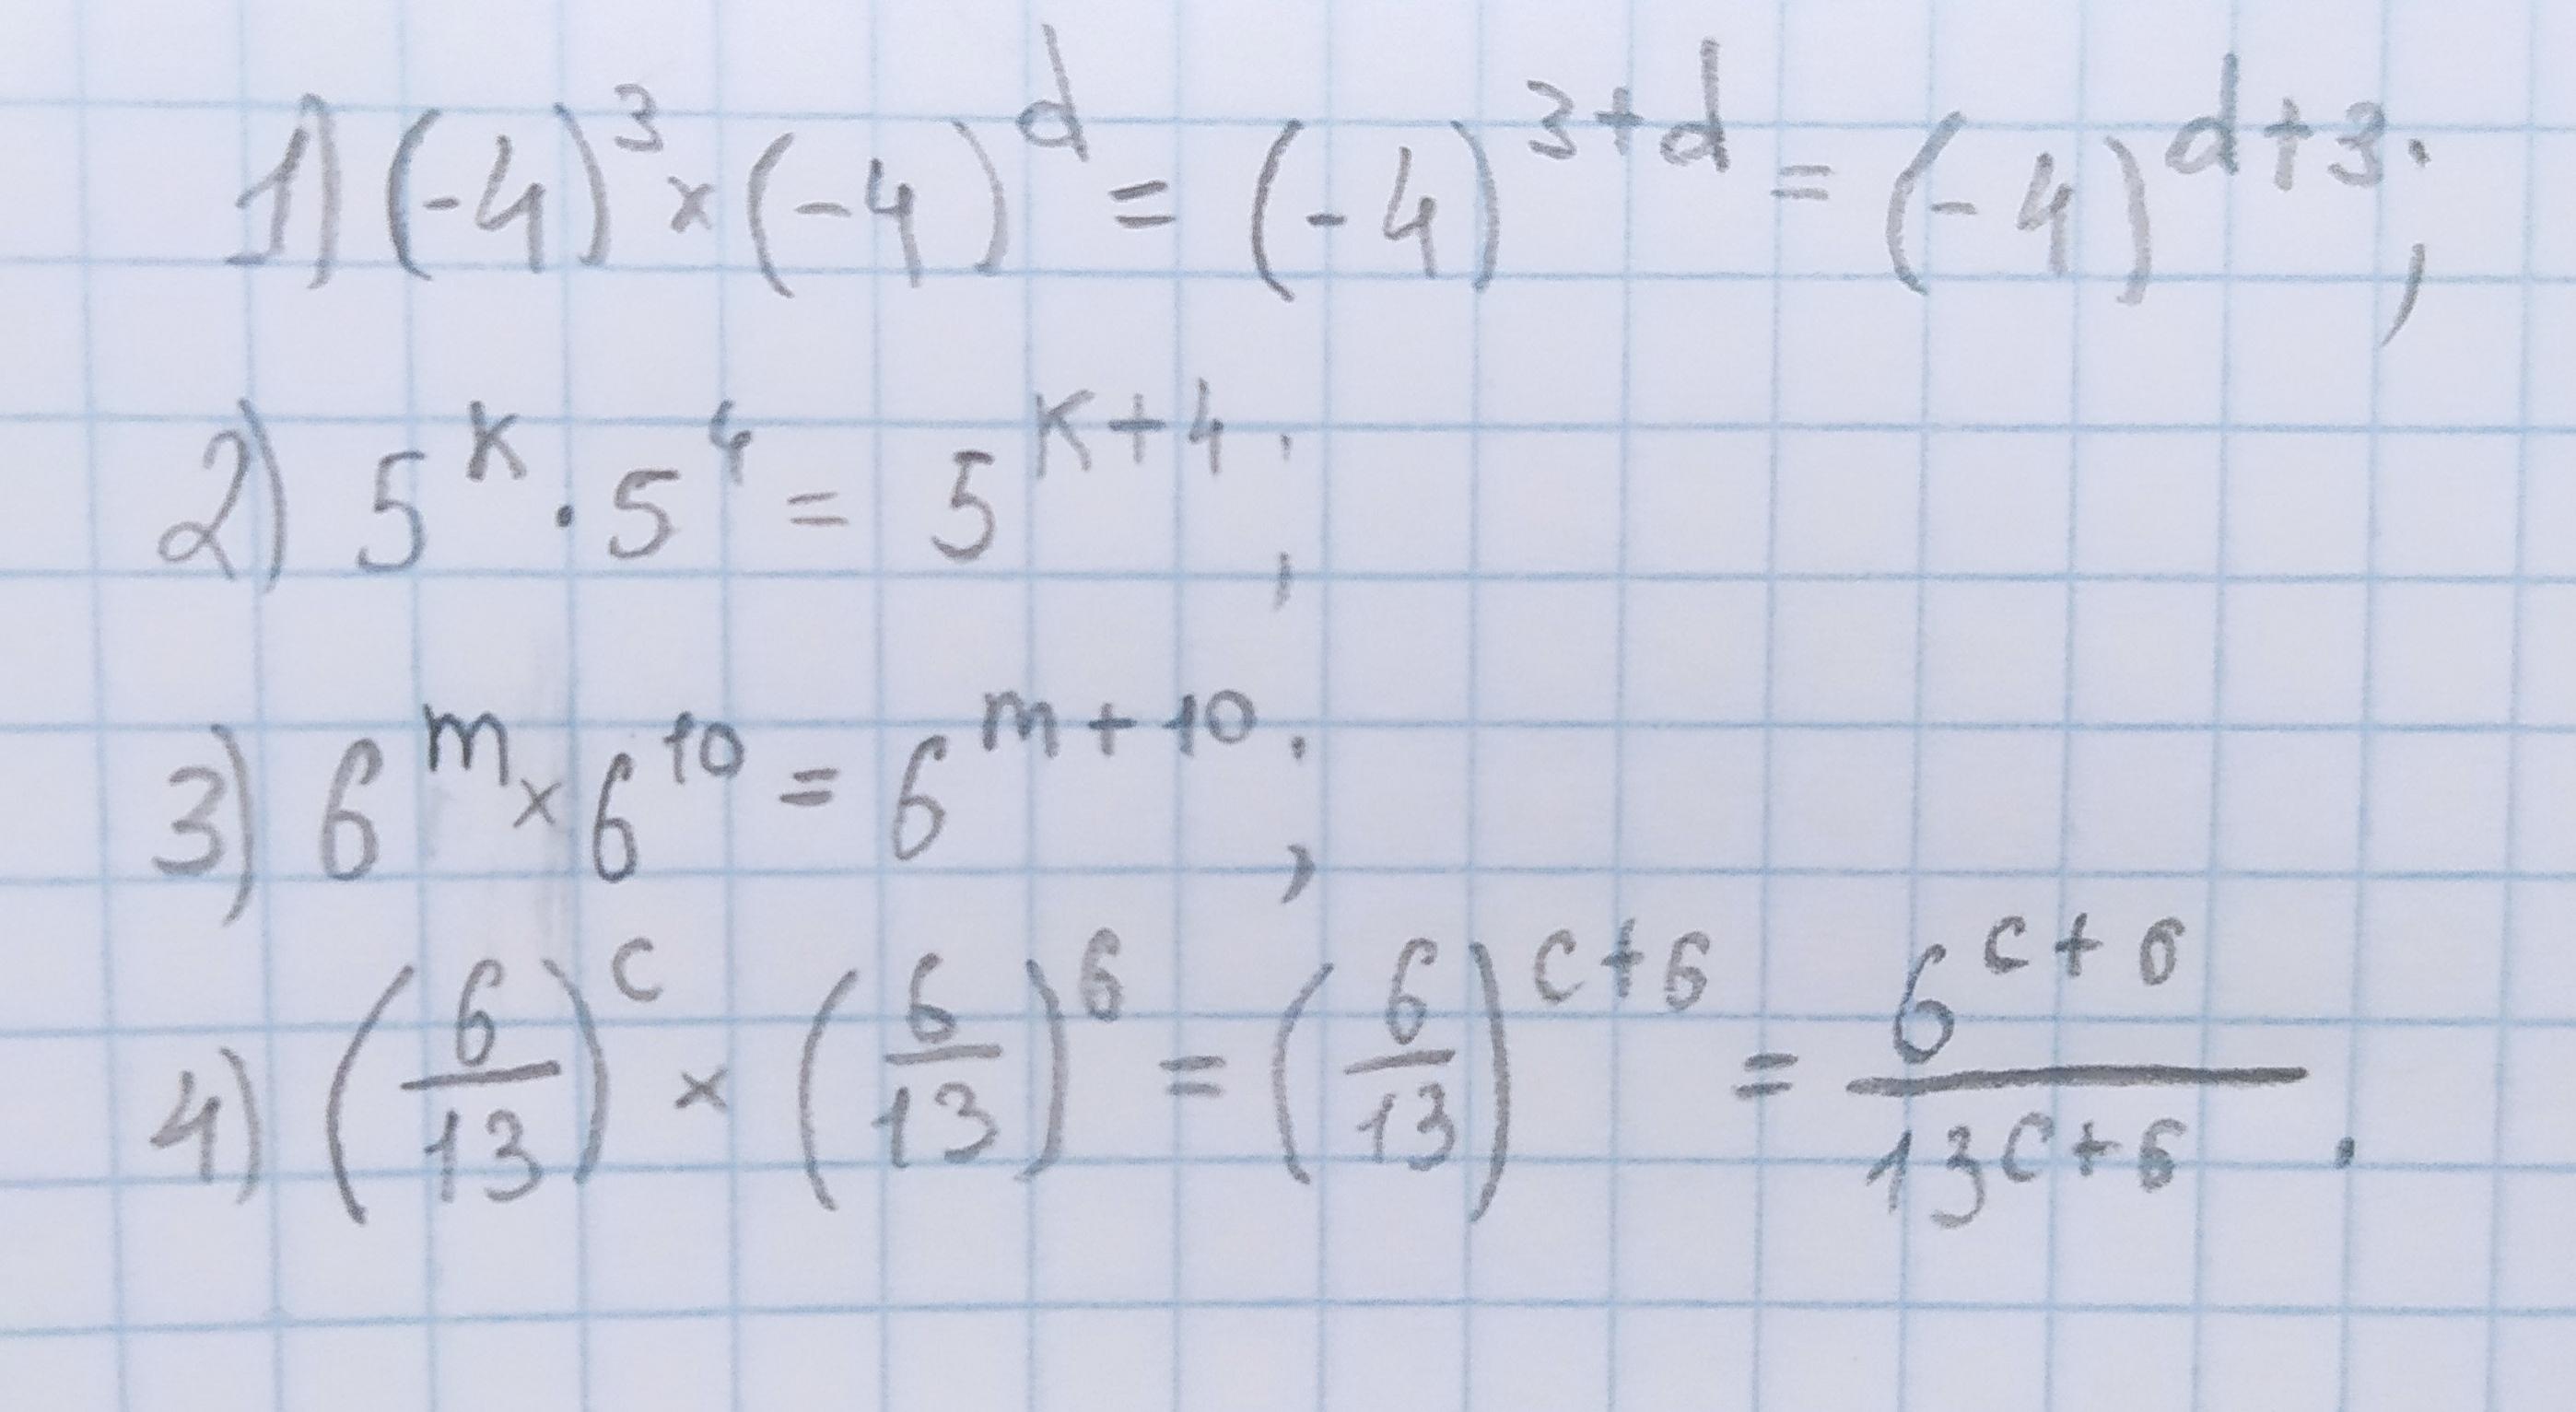 1) (-4)³ × (-4)^d = (-4)^{3+d} = (-4)^{d+3};
2) 5^k · 5⁴ = 5^{k+4};
3) 6^m × 6^{10} = 6^{m+10};
4) (6/13)^c × (6/13)^6 = (6/13)^{c+6} = 6^{c+6}/13^{c+6}.